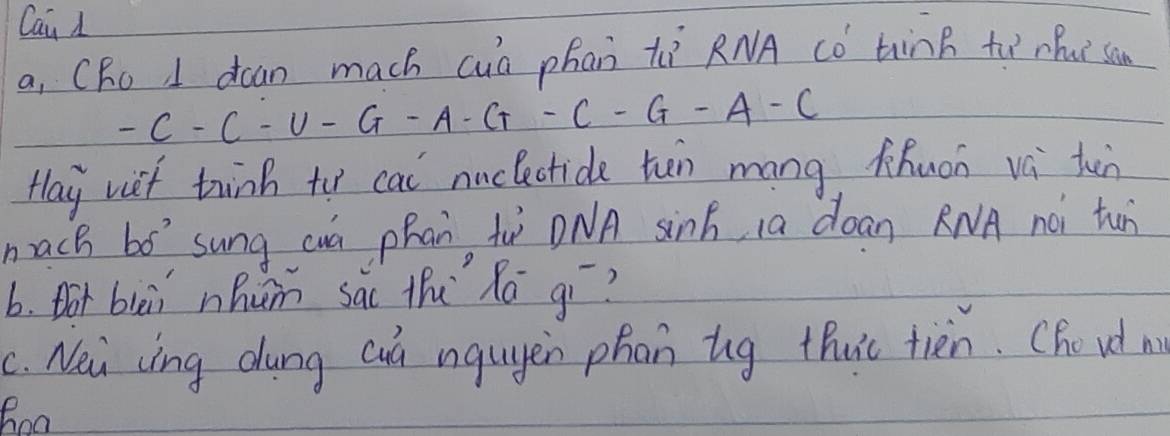 Câu 1
a, Cho 1 đoạn mạch của phân tử RNA có trình tự như sau
- C - C - U - G - A - G - C - G - A - C
Hãy viết trình tự các nucleotide trên mạng khuôn và trên
mạch bổ sung của phân tử DNA sinh ra đoạn RNA nói trên
b. Đột biến nhiễm sắc thể là gì?
c. Nêu ứng dụng của nguyên phân trg thực tiễn. Cho vd
hoạ